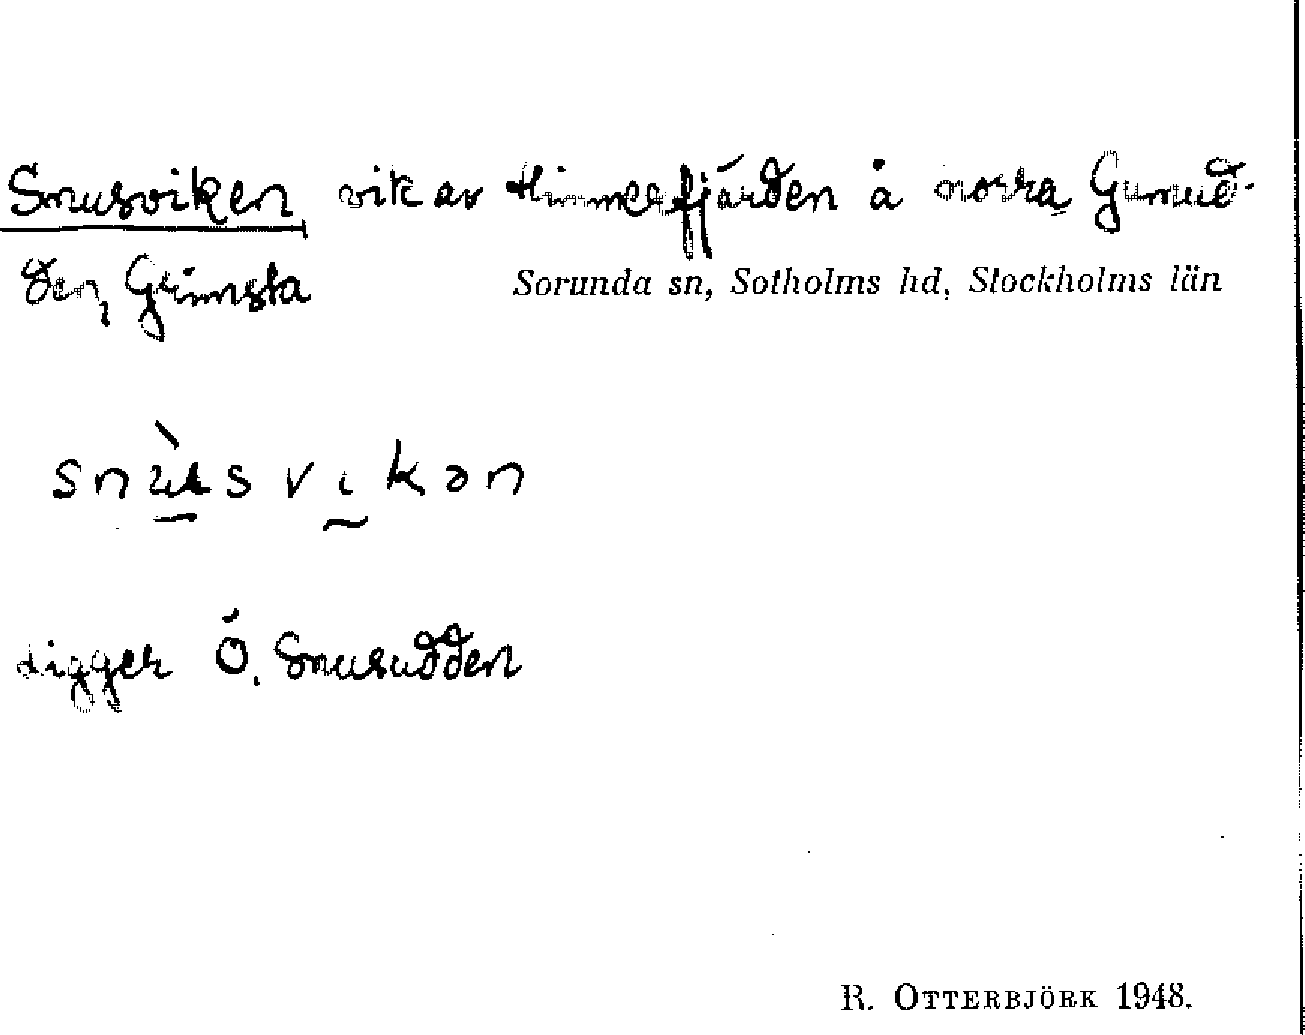 Snusviken vik av Himmerfjärden å norra Gumud-
den, Grimsta
Sorunda sn, Sotholms hd, Stockholms län
snùsvikən
ligger Ö. Snusudden
R. OTTERBJÖRK 1948.